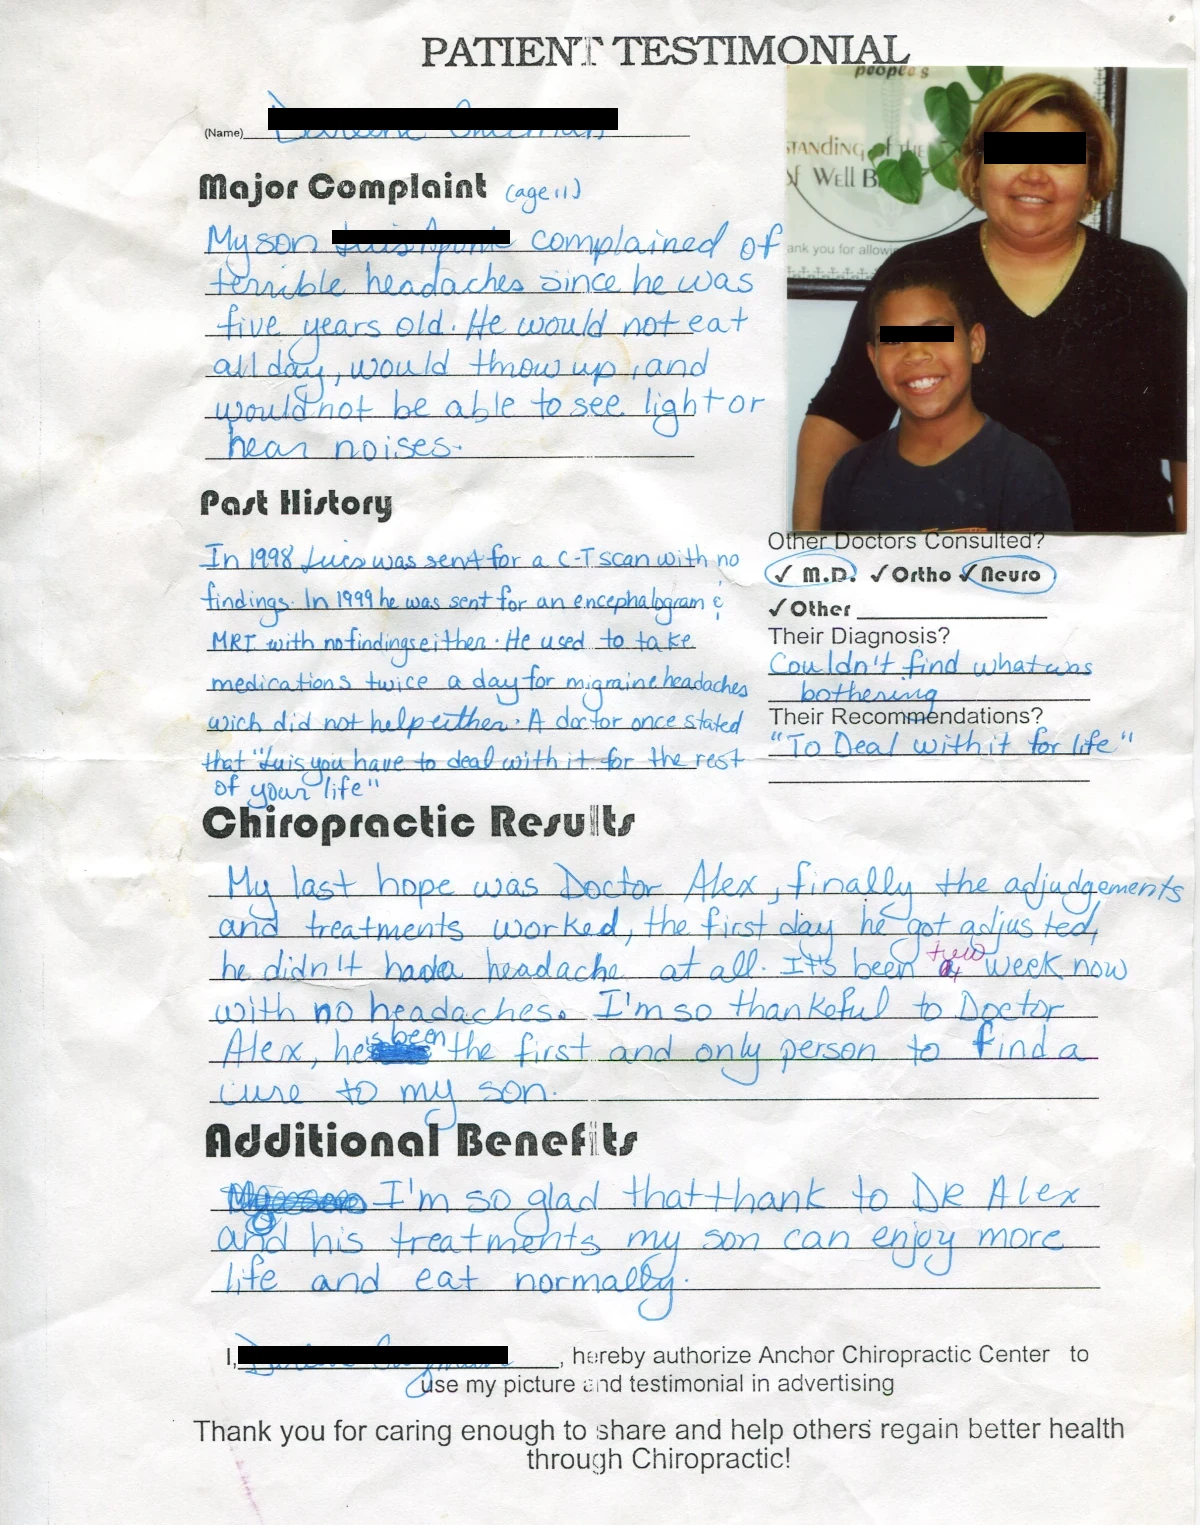 PATIENT TESTIMONIAL
people's
STANDING of THE
of WELL B
ank you for allowin
(Name)
Major Complaint (age 11)
My son complained of
terrible headaches since he was
five years old. He would not eat
all day, would throw up, and
would not be able to see light or
hear noises.
Past History
In 1998 Luis was sent for a C-T scan with no
findings. In 1999 he was sent for an encephalogram &
MRI with no findings either. He used to take
medications twice a day for migraine headaches
wich did not help either. A doctor once stated
that "Luis you have to deal with it for the rest
of your life"
Other Doctors Consulted?
✓ M.D. ✓ Ortho ✓ Neuro
✓ Other
Their Diagnosis?
Couldn't find what was
bothering
Their Recommendations?
"To Deal with it for life"
Chiropractic Results
My last hope was Doctor Alex, finally the adjudgements
and treatments worked, the first day he got adjusted,
he didn't had a headache at all. It's been week now
with no headaches. I'm so thankeful to Doctor
Alex, he's been the first and only person to find a
cure to my son.
Additional Benefits
I'm so glad that thank to DR Alex
and his treatments my son can enjoy more
life and eat normally.
I, , hereby authorize Anchor Chiropractic Center to
use my picture and testimonial in advertising
Thank you for caring enough to share and help others regain better health
through Chiropractic!